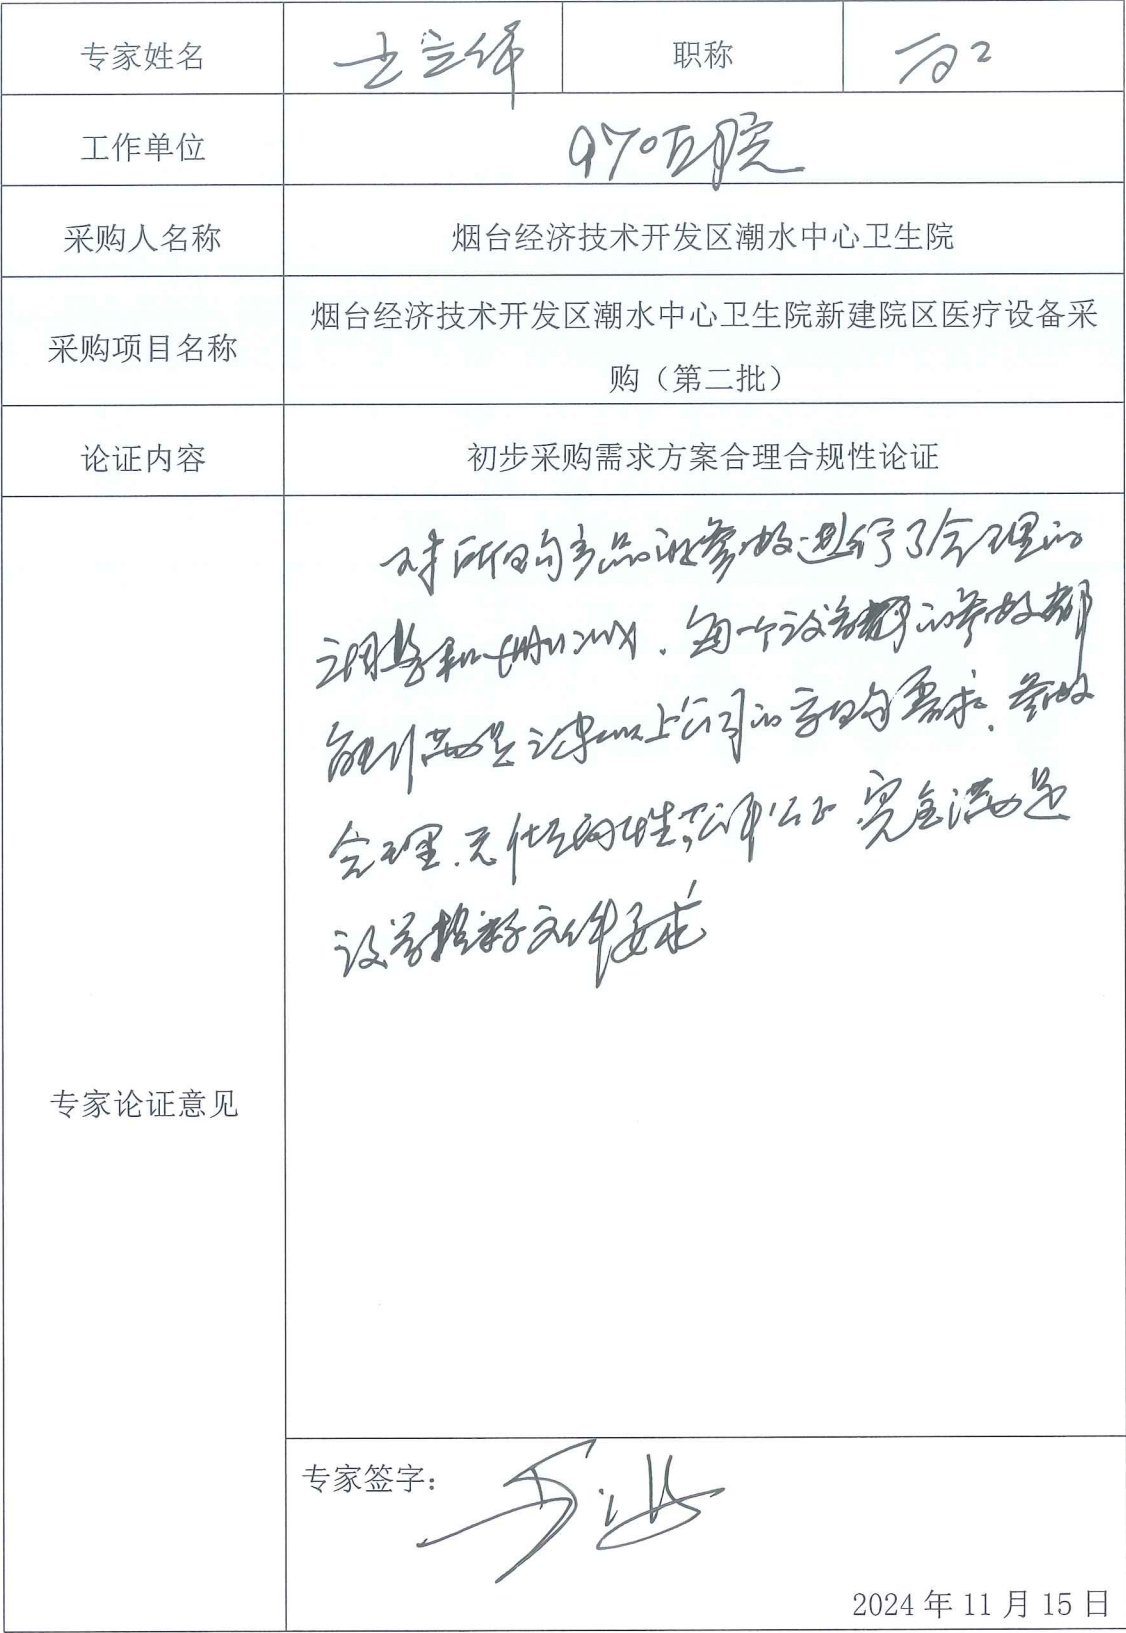 专家姓名 王立绎 职称 高工
工作单位 970医院
采购人名称 烟台经济技术开发区潮水中心卫生院
采购项目名称 烟台经济技术开发区潮水中心卫生院新建院区医疗设备采
购（第二批）
论证内容 初步采购需求方案合理合规性论证
对所购产品的参数进行了合理的
调整和. 每一个设备的参数都
能满足三家以上公司的需求、参数
合理.无倾向性,公平公正 完全满足
设备招标文件要求
专家论证意见
专家签字：
2024年11月15日